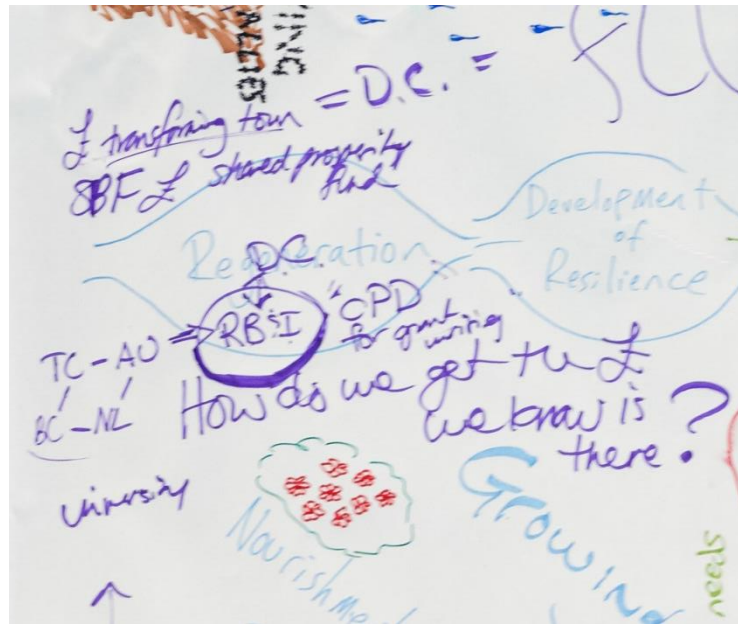 £ transforming town = D.C. =
SBF £ shared prosperity
fund
Regeneration
Development
of
Resilience
D.C.
RBSI
"CPD"
for grant
writing
TC - AU =>
BC - NL
How do we get the £
we know is
there?
university
Nourishme
GROWING
needs